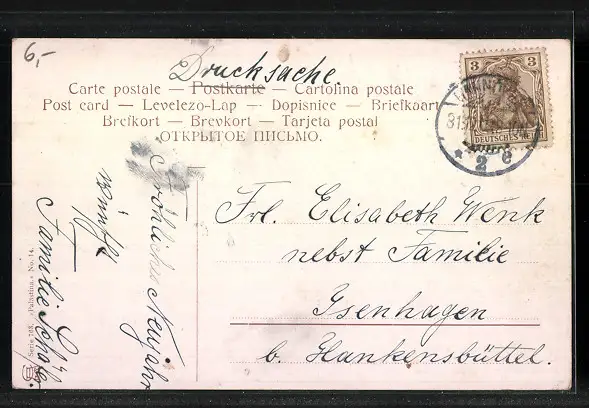 6,-
Drucksache.
Carte postale — Postkarte — Cartolina postale
Post card — Levelező-Lap — Dopisnice — Briefkaart
Brefkort — Brevkort — Tarjeta postal
ОТКРЫТОЕ ПИСЬМО.
3 3
DEUTSCHES
31.
* 2 e
Fröhliches Neujahr
wünscht
Familie
Serie 268. „Palatina“ No. 14.
Frl. Elisabeth Wenk
nebst Familie
Isenhagen
b. Hankensbüttel.